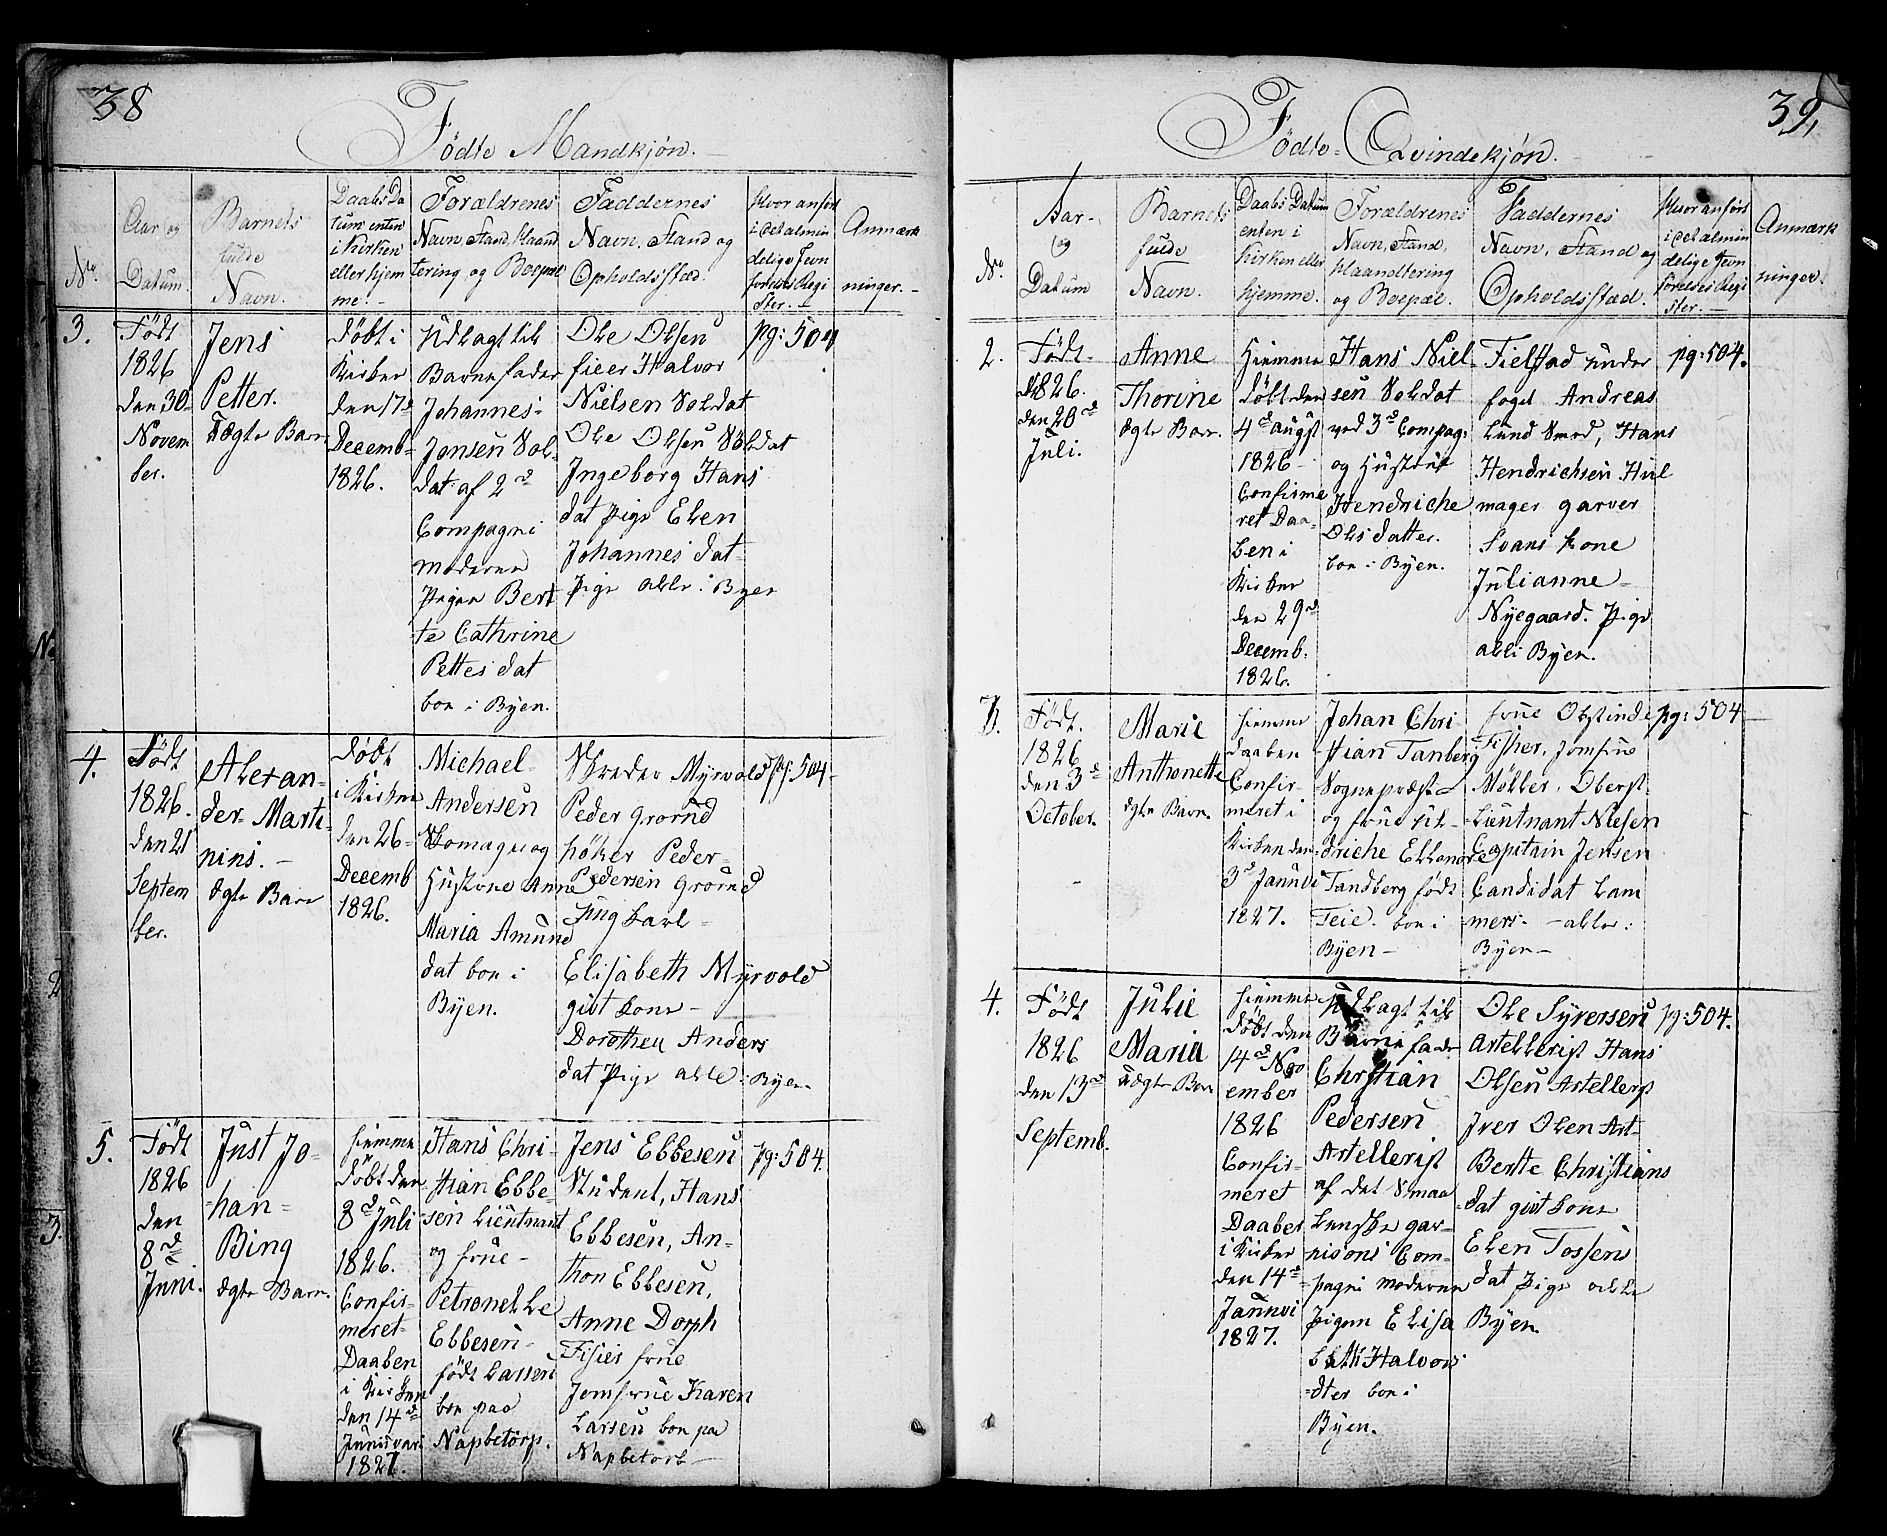 38
Födte Mandkjön.
No
Aar og
Datum.
Barnets
fulde
Navn.
Daabs Da
tum enten
i Kirken
eller hjem
me.
Forældrenes
Navn, Stand, Haand
tering og Boepæl
Faddernes
Navn, Stand og
Opholdsstæd.
Hvor anført
i det almin
delige Jevn
förelses Regi
ster.
Anmærk
ninger.
3.
Född
1826
den 30
Novem
ber.
Jens
Petter.
Uægte Barn
Döbt i
Kirken
den 17d
Decemb-
1826.
Udlagt til
Barnefader
Johannes
Jensen Sol-
dat af 2d
Compagni
moderen
Pigen Bert
te Cathrine
Pettersdat
boe i Byen.
Ole Olsen
fieer Halvor
Nielsen Soldat
Ole Olsen Soldat
Ingeborg Hans
dat Pige Elen
Johannesdat-
Pige alle i Byen
pg: 504
4.
Född
1826.
den 21
Septem
ber.
Alexan-
der Marti-
nius.
Ægte Barn
Döbt
i Kirken
den 26
Decemb
1826.
Michael
Andersen
Skomager og
Hustroe Anne
Maria Amund
dat boe i
Byen.
Skreder Myrvold
Peder Grorud
höker Peder
Pedersen Grorud
Ungkarl
Elisabeth Myrvold
givt Kone
Dorothea Anders
dat Pige alle i Byen
pg: 504
5.
Född
1826
den
8de
Juni.
Just Jo-
han
Bing
Ægte Barn.
Hiemme
döbt den
8d Juli
1826.
Confir-
meret
Daaben
i Kirken
den 14d
Januari
1827.
Hans Chri-
stian Ebbe-
sen Lieutnant
og frue
Petronelle
Ebbesen
födt Larsen
boe paa
Napbetorp.
Jens Ebbesen
Student, Hans
Ebbesen, An-
thon Ebbesen,
Anne Dorph
frue
Jomfrue Karen
Larsen boe paa
Napbetorb
pg: 504.
39.
Födte Qvindekjön.
No.
Aar-
og
Datum
Barnets
fulde
Navn.
Daabs Datum
enten i
Kirken eller
hjemme.
Forældrenes
Navn, Stand,
Haandtering
og Boepæl.
Faddernes
Navn, Stand og
Opholdsstæd.
Hvor anført
i det almin
delige Jevn
förelses Regi
ster.
Anmærk
ninger.
2.
Född
1826.
den 20d
Juli.
Anne
Thorine
Ægte Barn.
Hiemme
döbt den
4d Augst
1826
Confirme
ret Daa-
ben i
Kirken
den 29d
Decemb.
1826.
Hans Niel
sen Soldat
ved 3d Compag:
og Hustrue
Hendriche
Olsdatter.
boe i Byen.
Fielstad under
foget Andreas
Lund Smed, Hans
Hendrichsen Hul
mager garver
Svans Kone
Julianne
Nyegaard. Pige
alle i Byen.
pg: 504.
3.
Född.
1826
den 3d
October.
Marie
Anthonette
ægte Barn.
Hiemme
daaben
Confir-
meret i
Kirken den
3d Januri
1827.
Johan Chri-
stian Tanberg
Sognepræst
og frue
driche Ellenore
Tandberg födt
Teie. boe i
Byen
frue Obstinde
Fisher, Jomfrue
Möller, Oberst
Lieutnant Nielsen
Capitain Jensen
Candidat Lam
mers alle i
Byen
pg: 504
4.
Född
1826
den 13d
Septemb.
Julie
Maria
uægte Barn
Hiemme
döbt den
14d Nov
ember
1826
Confir-
meret
Daaben
i Kirken
den 14d
Januvi
1827.
Udlagt til
Barnefader
Christian
Pedersen
Artellerist
af det Smaa
lenske gar-
nisons Com-
pagni moderen
Pigen Elisa
beth Halvors
dter boe i
Byen.
Ole Syversen
Artellerist Hans
Olsen Artellerist
Iver Olsen Art-
Bertte Christians
dat givt Kone
Elen Tossens
dat Pige alle i
Byen
pg: 504.